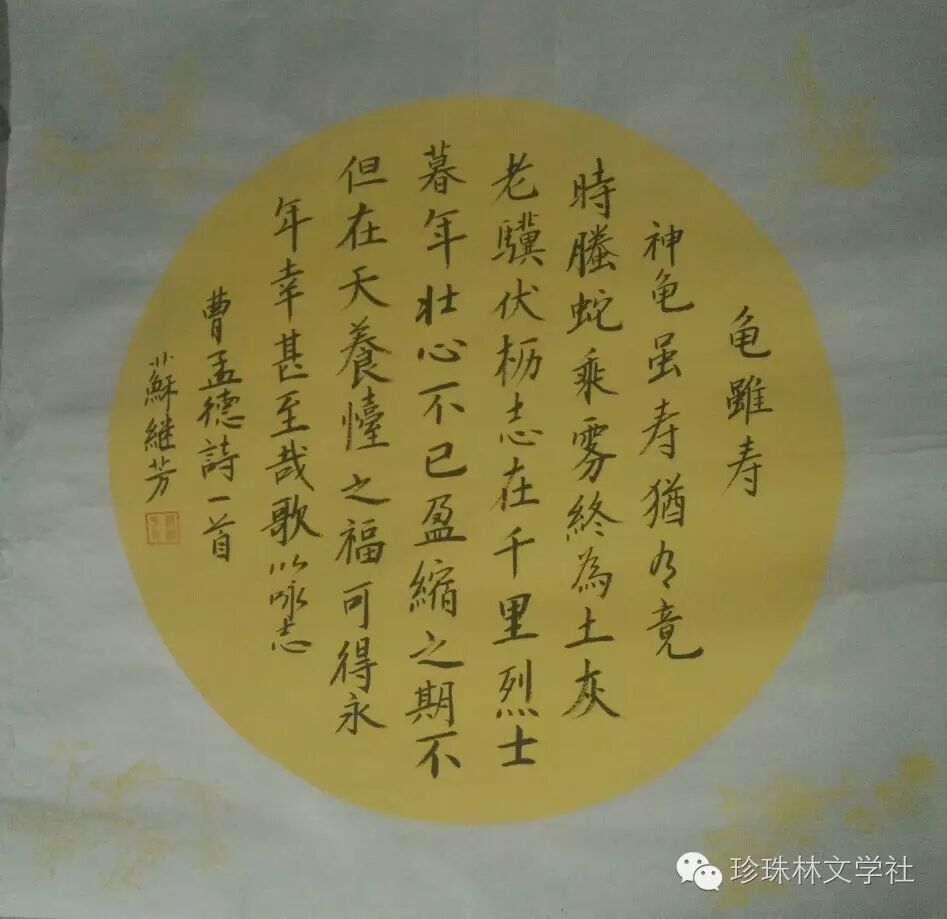 龟雖寿
神龟虽寿猶有竟
時螣蛇乘雾終為土灰
老驥伏枥志在千里烈士
暮年壮心不已盈縮之期不
但在天養懂之福可得永
年幸甚至哉歌以咏志
曹孟德詩一首
蘇継芳
珍珠林文学社